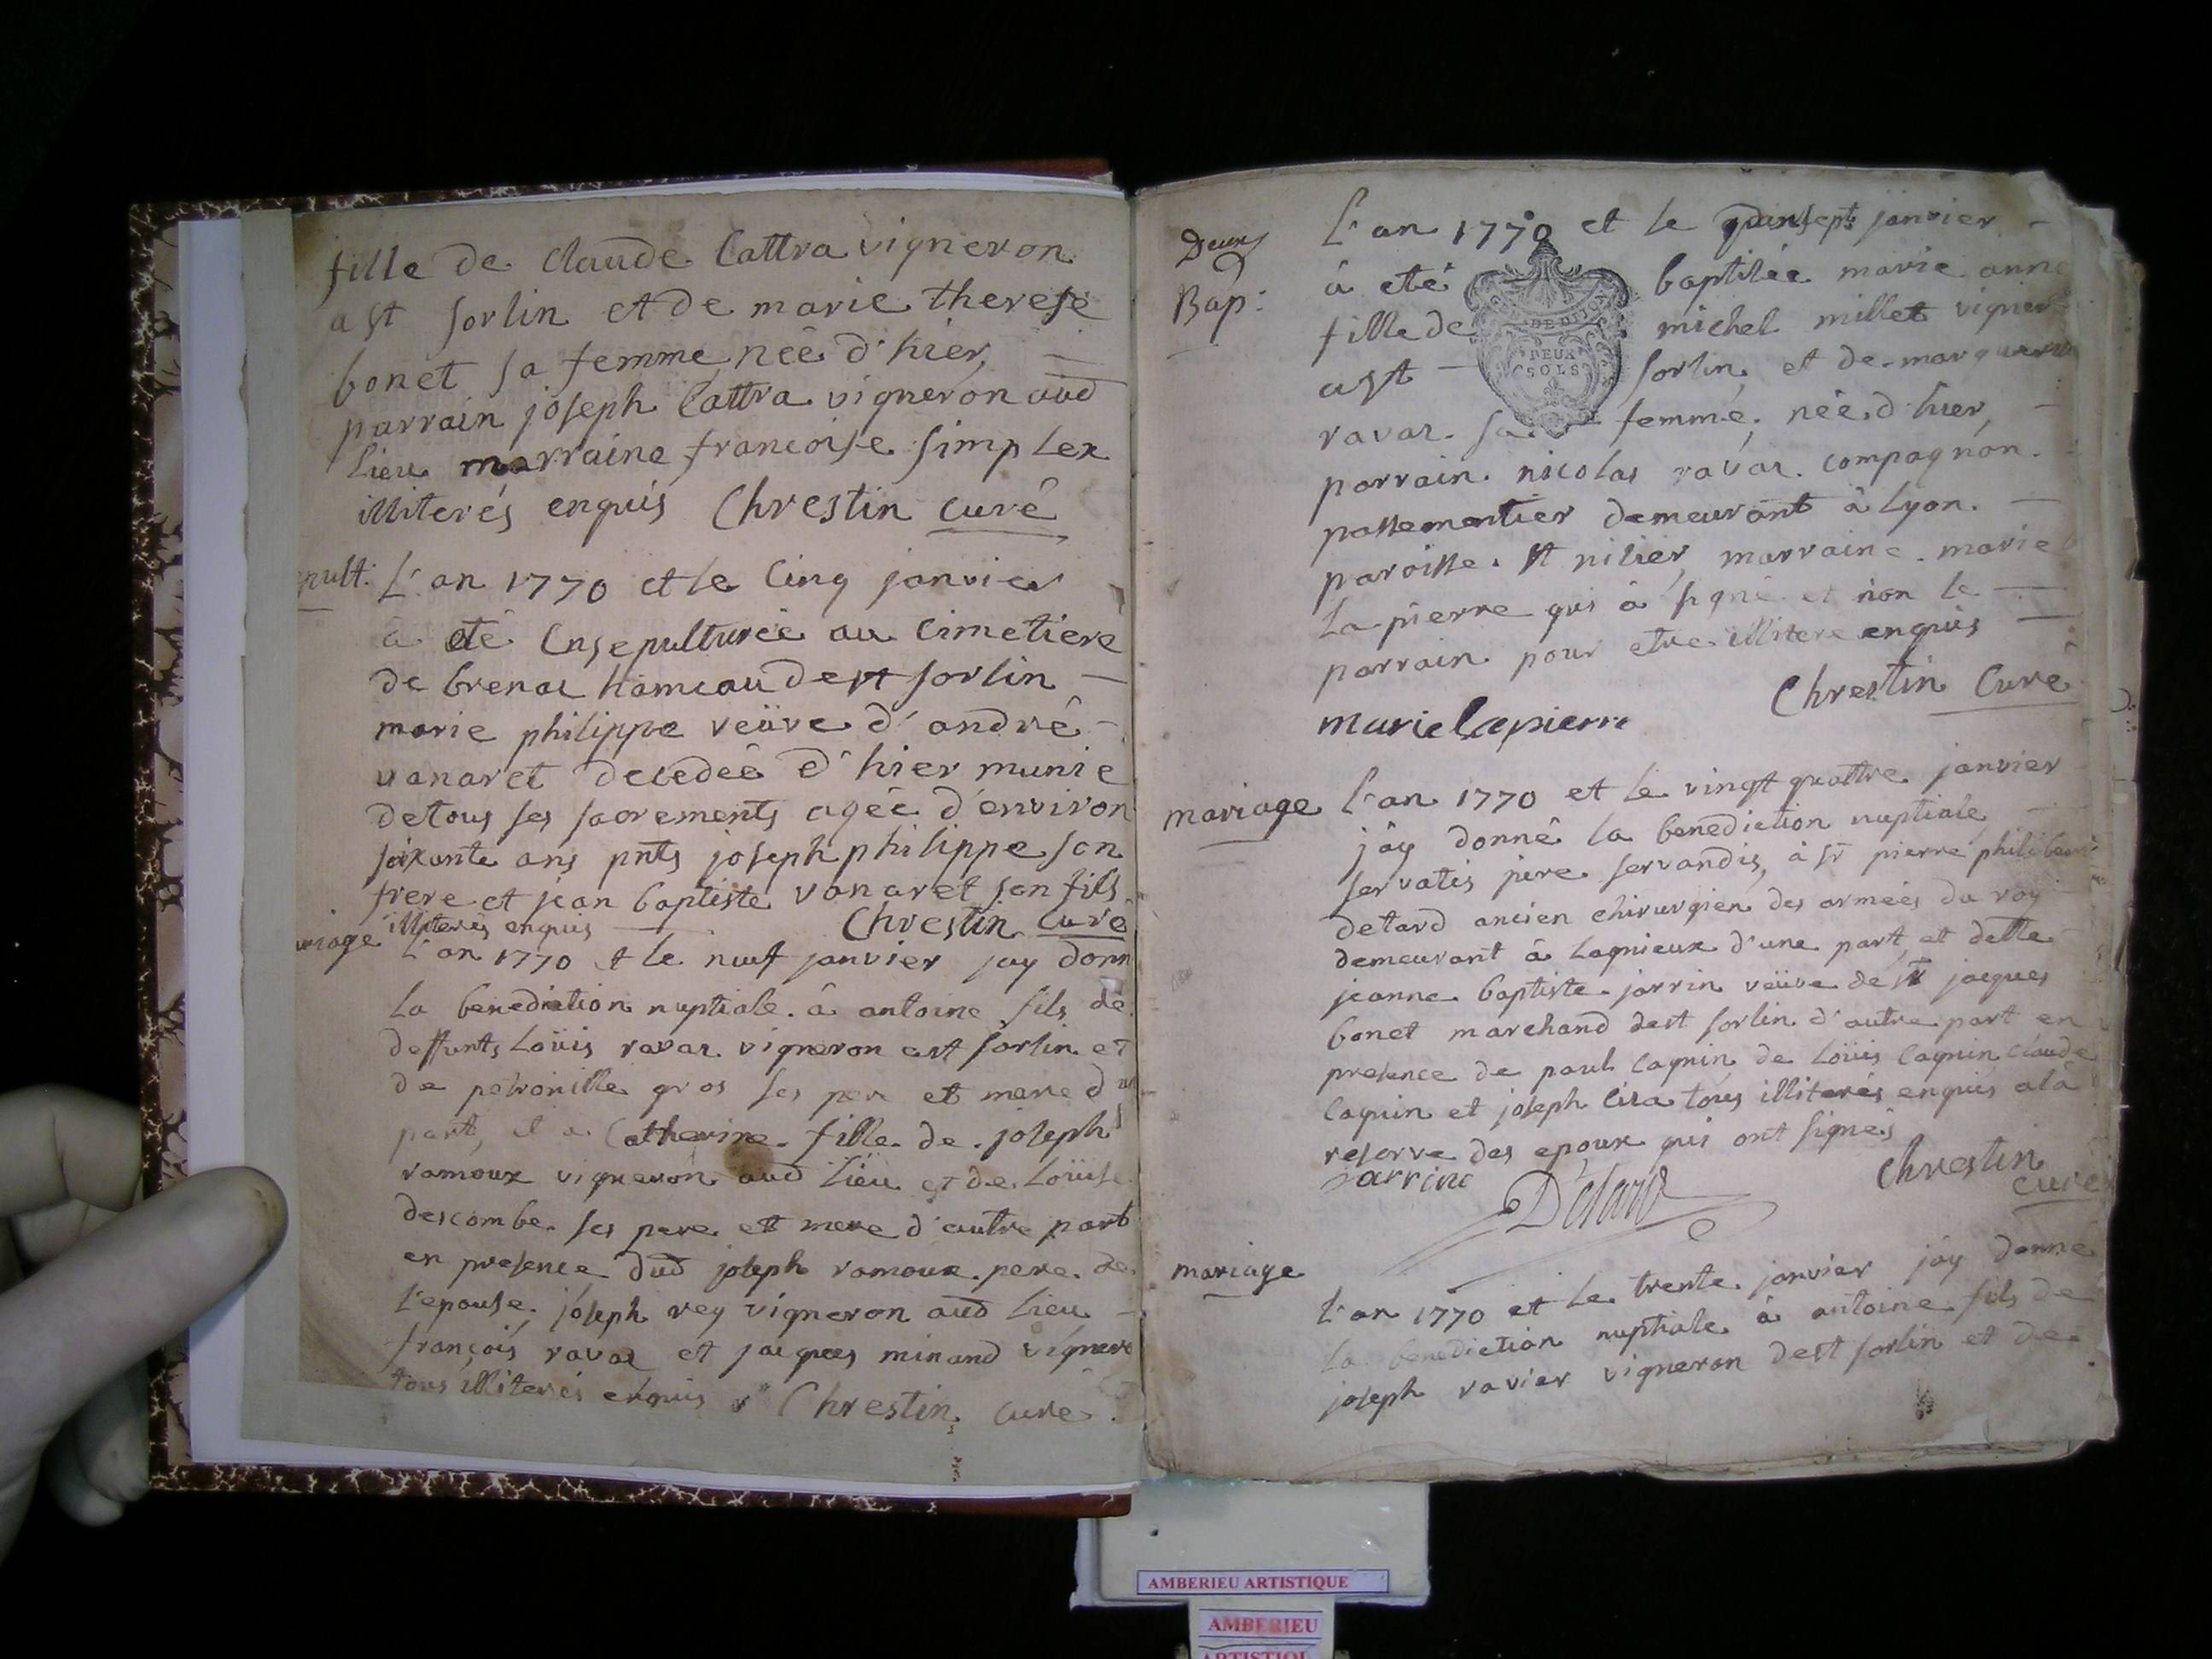 fille de claude Cattra vigneron
a st sorlin et de marie therese
bonet sa femme née d'hier,
parrain joseph Cattra vigneron aud
lieu marraine francoise simplex
illiterés enquis Chrestin curé
pult: L'an 1770 et le cinq janvier
à été ensepulturée au cimetiere
de brenaz hameau de st sorlin
marie philippe veüve d'andré
vanaret decedée d'hier munie
de tous ses sacrements agée d'environ
soixante ans pnts joseph philippe son
frere et jean baptiste vanaret son fils
illiterés enquis Chrestin curé
riage L'an 1770 et le neuf janvier jay donn
la benediction nuptiale à antoine fils de
deffunts Loüis ravaz vigneron a st sorlin et
de petronille gros ses per et mere d'un
part, et a Catherine fille de joseph
ramoux vigneron aud lieu et de Loüise
descombe ses pere et mere d'autre part
en presence dud joseph ramoux pere de
l'epouse, joseph rey vigneron aud lieu
françois ravaz et jacques minand vignero
tous illiterés enquis Chrestin curé
Deux
Bap:
L'an 1770 et le janvier
à eté baptisée marie anne
fille de michel millet vigner
a st sorlin, et de marguerite
ravaz sa femme, née d'hier,
parrain nicolas ravaz compagnon
passementier demeurant à Lyon
paroisse st nisier, marraine marie
La pierre qui à signé et non le
parrain pour etre illitere enquis
Chrestin Curé
marie lapierre
GEN. DE DIJON
DEUX
SOLS
mariage L'an 1770 et le vingt quattre janvier
j'ay donné la benediction nuptiale
servatis jure servandis, à sr pierre philibert
detard ancien chirurgien des armées du roy
demeurant à Lagnieux d'une part, et delle
jeanne baptiste jarrin veüve de sr jacques
bonet marchand de st sorlin d'autre part en
presence de paul cagnin de Loüis cagnin claude
cagnin et joseph tous illiterés enquis a la
reserve des epoux qui ont signés
jarrine Detard Chrestin
curé
mariage
L'an 1770 et le trente janvier j'ay donné
la benediction nuptiale à antoine fils de
joseph ravier vigneron de st sorlin et de
AMBERIEU ARTISTIQUE
AMBERIEU
ARTISTIQU